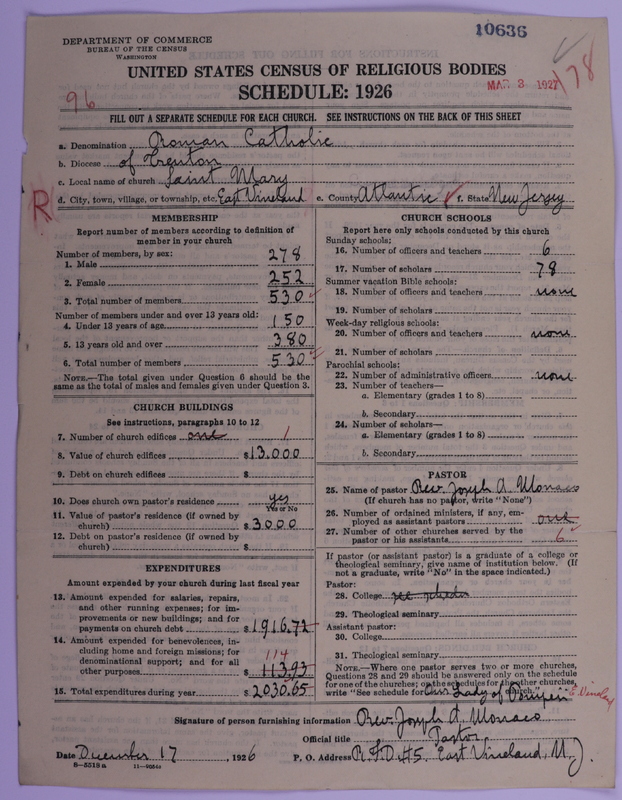 DEPARTMENT OF COMMERCE
BUREAU OF THE CENSUS
WASHINGTON
10636
UNITED STATES CENSUS OF RELIGIOUS BODIES
SCHEDULE: 1926
MAR 3 1927
178
96
FILL OUT A SEPARATE SCHEDULE FOR EACH CHURCH. SEE INSTRUCTIONS ON THE BACK OF THIS SHEET
a. Denomination Roman Catholic
b. Diocese of Trenton
c. Local name of church Saint Mary
d. City, town, village, or township, etc. East Vineland e. County Atlantic f. State New Jersey
R
MEMBERSHIP
Report number of members according to definition of member in your church
Number of members, by sex:
1. Male 278
2. Female 252
3. Total number of members 530
Number of members under and over 13 years old:
4. Under 13 years of age 150
5. 13 years old and over 380
6. Total number of members 530
NOTE.—The total given under Question 6 should be the same as the total of males and females given under Question 3.
CHURCH BUILDINGS
See instructions, paragraphs 10 to 12
7. Number of church edifices one 1
8. Value of church edifices $13.000
9. Debt on church edifices $
10. Does church own pastor's residence yes
Yes or No
11. Value of pastor's residence (if owned by church) $3000
12. Debt on pastor's residence (if owned by church) $
EXPENDITURES
Amount expended by your church during last fiscal year
13. Amount expended for salaries, repairs, and other running expenses; for improvements or new buildings; and for payments on church debt $1916.72
14. Amount expended for benevolences, including home and foreign missions; for denominational support; and for all other purposes $113.93
114
15. Total expenditures during year $2030.65
CHURCH SCHOOLS
Report here only schools conducted by this church
Sunday schools:
16. Number of officers and teachers 6
17. Number of scholars 78
Summer vacation Bible schools:
18. Number of officers and teachers none
19. Number of scholars
Week-day religious schools:
20. Number of officers and teachers none
21. Number of scholars
Parochial schools:
22. Number of administrative officers none
23. Number of teachers—
a. Elementary (grades 1 to 8)
b. Secondary
24. Number of scholars—
a. Elementary (grades 1 to 8)
b. Secondary
PASTOR
25. Name of pastor Rev. Joseph A. Monaco
(If church has no pastor, write "None")
26. Number of ordained ministers, if any, employed as assistant pastors one
27. Number of other churches served by the pastor or his assistants 6
If pastor (or assistant pastor) is a graduate of a college or theological seminary, give name of institution below. (If not a graduate, write "No" in the space indicated.)
Pastor:
28. College see
29. Theological seminary
Assistant pastor:
30. College
31. Theological seminary
NOTE.—Where one pastor serves two or more churches, Questions 28 and 29 should be answered only on the schedule for one of the churches; on the schedules for the other churches, write "See schedule for Our Lady of Pompeii church." E. Vineland
Signature of person furnishing information Rev. Joseph A. Monaco
Official title Pastor
Date December 17, 1926 P. O. Address R.F.D. #5, East Vineland, N.J.
8-5518a 11-9056